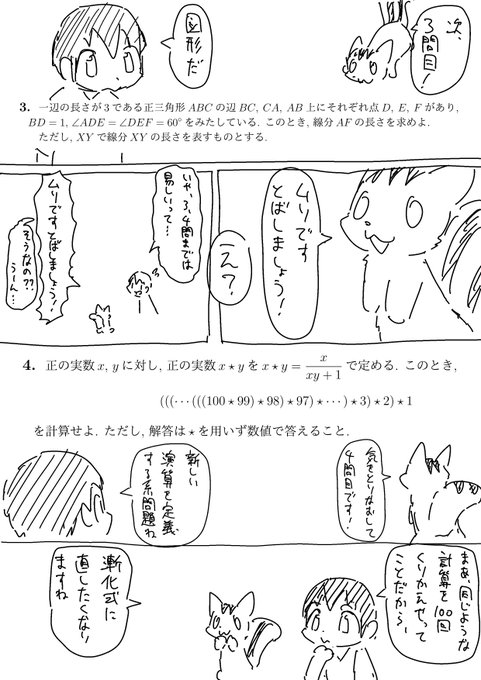 次、
3問目!
図形だ
3. 一辺の長さが 3 である正三角形 ABC の辺 BC, CA, AB 上にそれぞれ点 D, E, F があり,
BD = 1, ∠ADE = ∠DEF = 60° をみたしている. このとき, 線分 AF の長さを求めよ.
ただし, XY で線分 XY の長さを表すものとする.
ムリです
とばしましょう!
え?
いや、3,4問までは
易しいって…
ムリですとばしましょう!
そうなの??
うーん…
4. 正の実数 x, y に対し, 正の実数 x⋆y を x⋆y = x/(xy+1) で定める. このとき,
(((⋯(((100⋆99)⋆98)⋆97)⋆⋯)⋆3)⋆2)⋆1
を計算せよ. ただし, 解答は⋆を用いず数値で答えること.
気をとりなおして
4問目です!
新しい
演算を定義
する系問題ね
まあ、同じような
計算を100回
くりかえせって
ことだから、
漸化式に
直したくなり
ますね